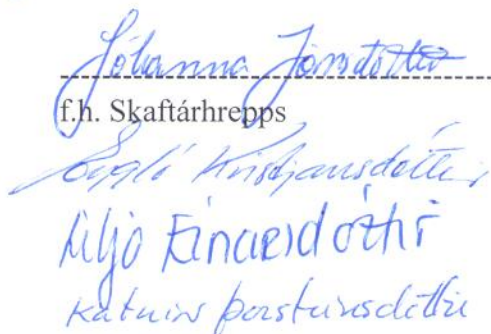 Jóhanna Jónsdóttir
f.h. Skaftárhrepps
Kristjánsdóttir
Lilja Einarsdóttir
Katrín Þorsteinsdóttir